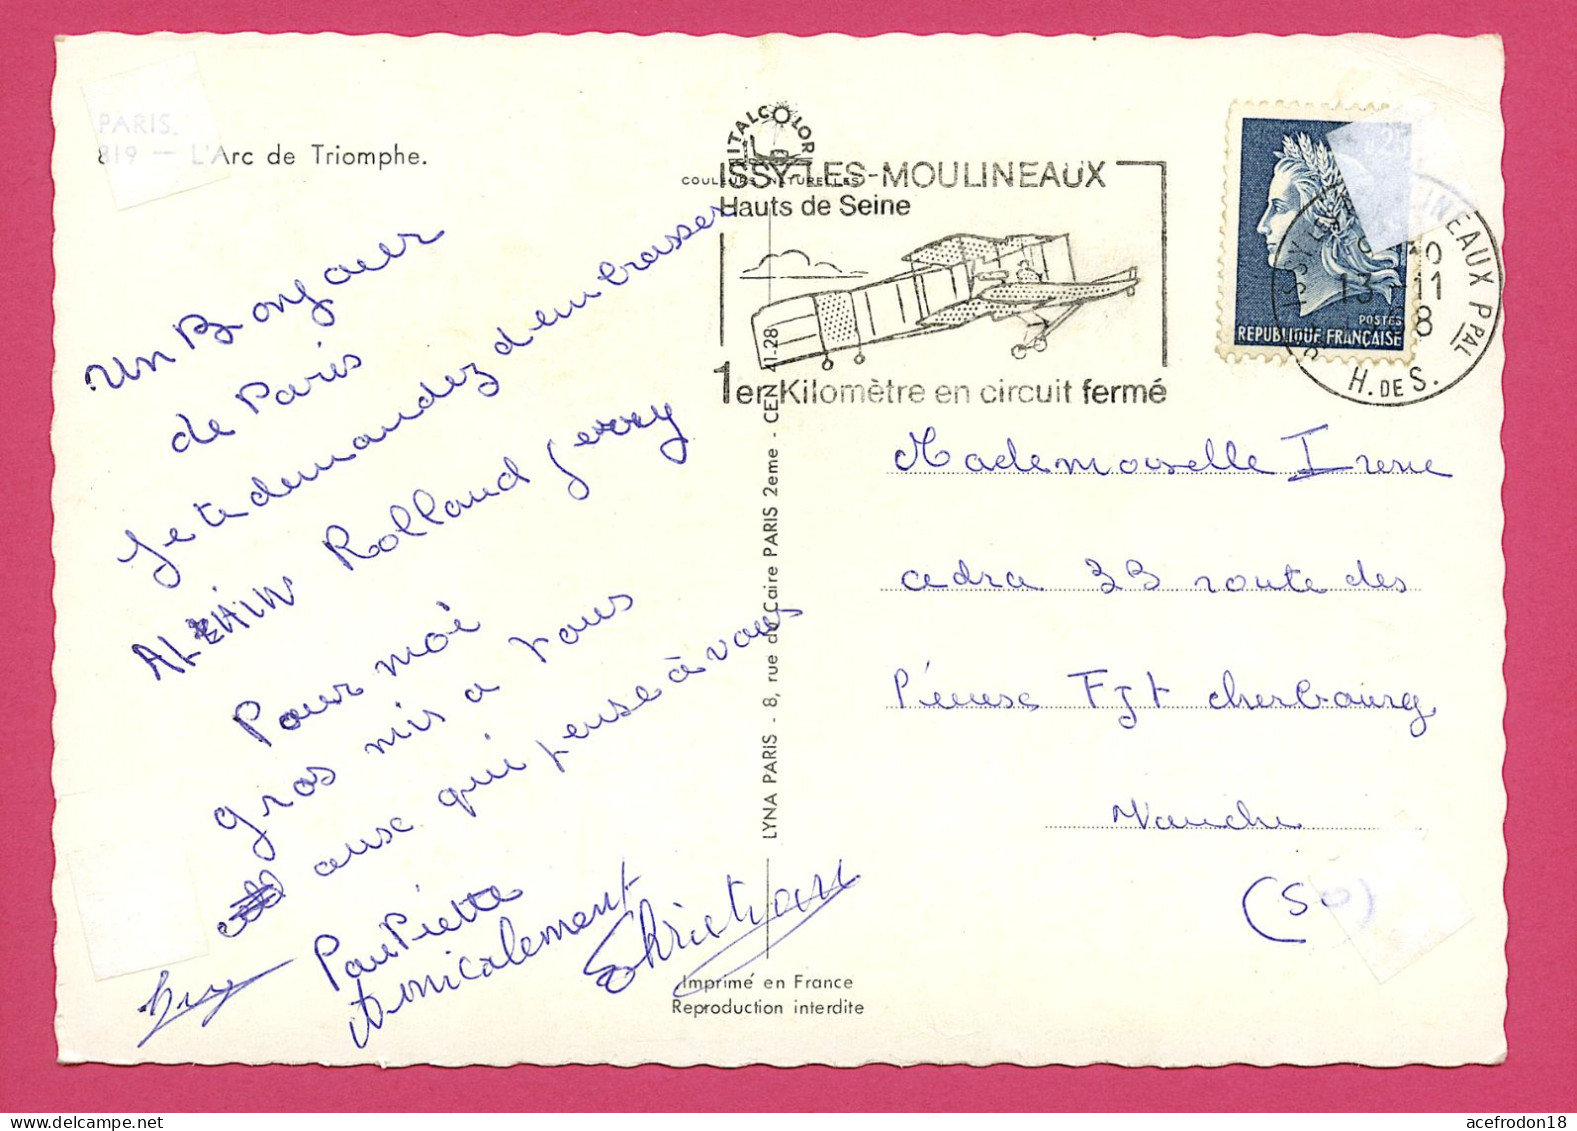 PARIS.
819 — L'Arc de Triomphe.
ITALCOLOR
COULEURS NATURELLES
ISSY-LES-MOULINEAUX
Hauts de Seine
1er Kilomètre en circuit fermé
0,25
POSTES
REPUBLIQUE FRANÇAISE
13-11
H. DE S.
Un Bonjour
de Paris
Je te demandez d'embrasser
ALAIN Rolland Jerry
Pour moi
gros mis a tous
ause qui pense à vous
PauPiette
Amicalement
Christian
LYNA PARIS - 8, rue du Caire PARIS 2eme - CEN 41.28
Imprimé en France
Reproduction interdite
Mademoiselle Irene
cadra 33 route des
Fjt cherbourg
Manche
(50)
acefrodon18